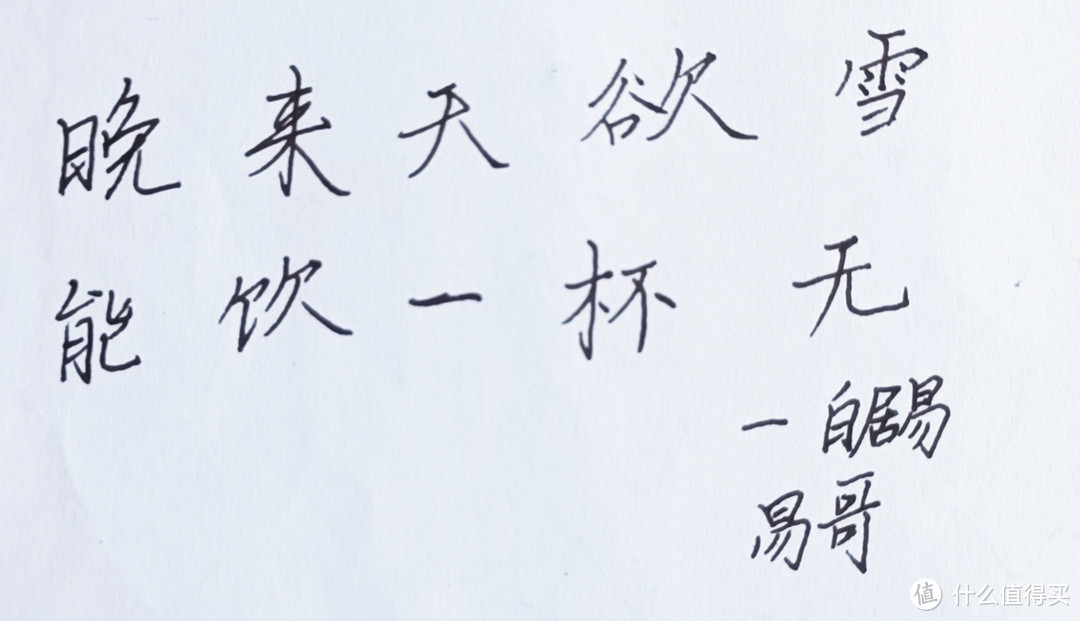 晚来天欲雪
能饮一杯无
—白居易
易哥
值 什么值得买